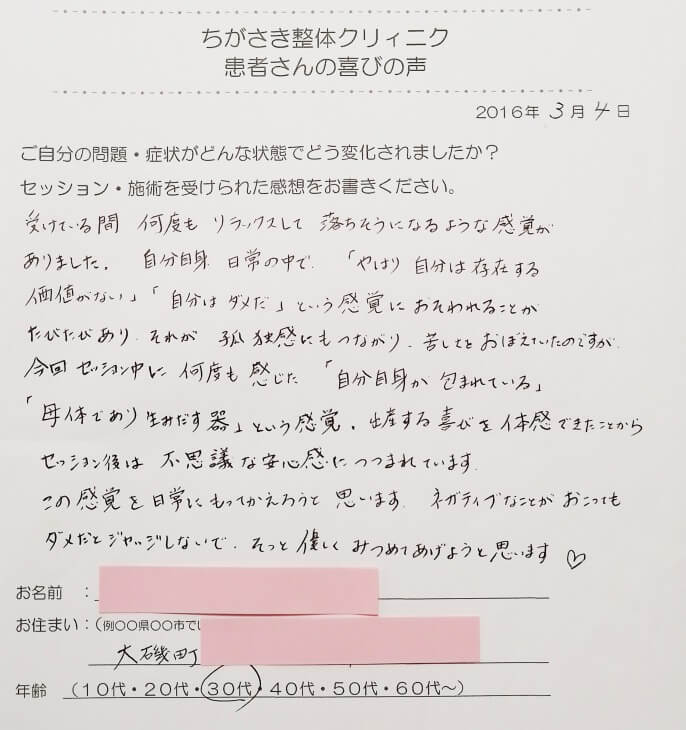 ちがさき整体クリィニク
患者さんの喜びの声
2016年 3月 4日
ご自分の問題・症状がどんな状態でどう変化されましたか？
セッション・施術を受けられた感想をお書きください。
受けている間 何度も リラックスして 落ちそうになるような感覚が
ありました。 自分自身 日常の中で、「やはり 自分は存在する
価値がない」「自分は ダメだ」という感覚に おそわれることが
たびたびあり、それが 孤独感にもつながり、苦しさを おぼえていたのですが、
今回 セッション中に 何度も 感じた 「自分自身が 包まれている」
「母体であり 生みだす 器」という感覚、出産する 喜びを 体感できたことから
セッション後は 不思議な安心感につつまれています。
この感覚を日常にもってかえろうと 思います。 ネガティブなことが おこっても
ダメだとジャッジしないで、そっと 優しく みつめてあげようと思います ♡
お名前 ：
お住まい：（例〇〇県〇〇市で
大磯町
年齢 （10代・20代・30代・40代・50代・60代～）